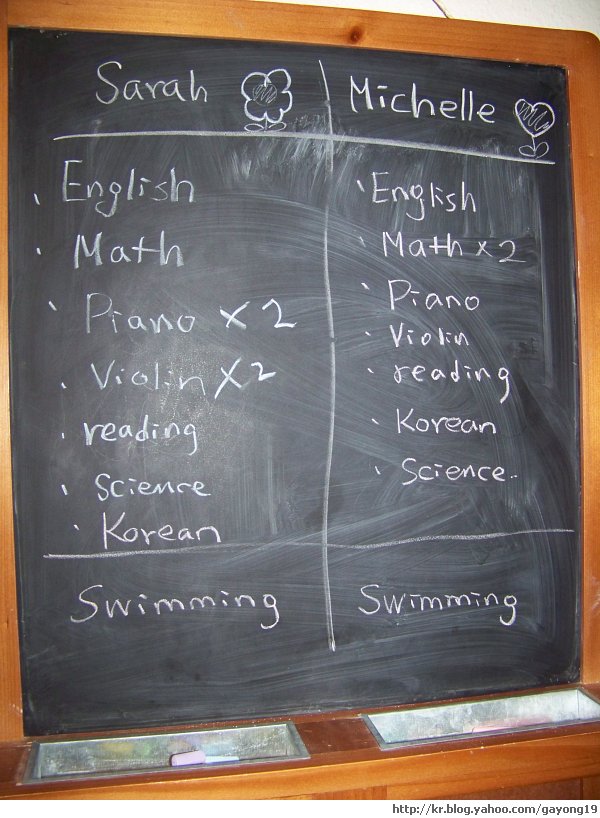 Sarah
English
Math
Piano x 2
Violin x 2
reading
Science
Korean
Swimming
Michelle
English
Math x 2
Piano
Violin
reading
Korean
Science
Swimming
http://kr.blog.yahoo.com/gayong19